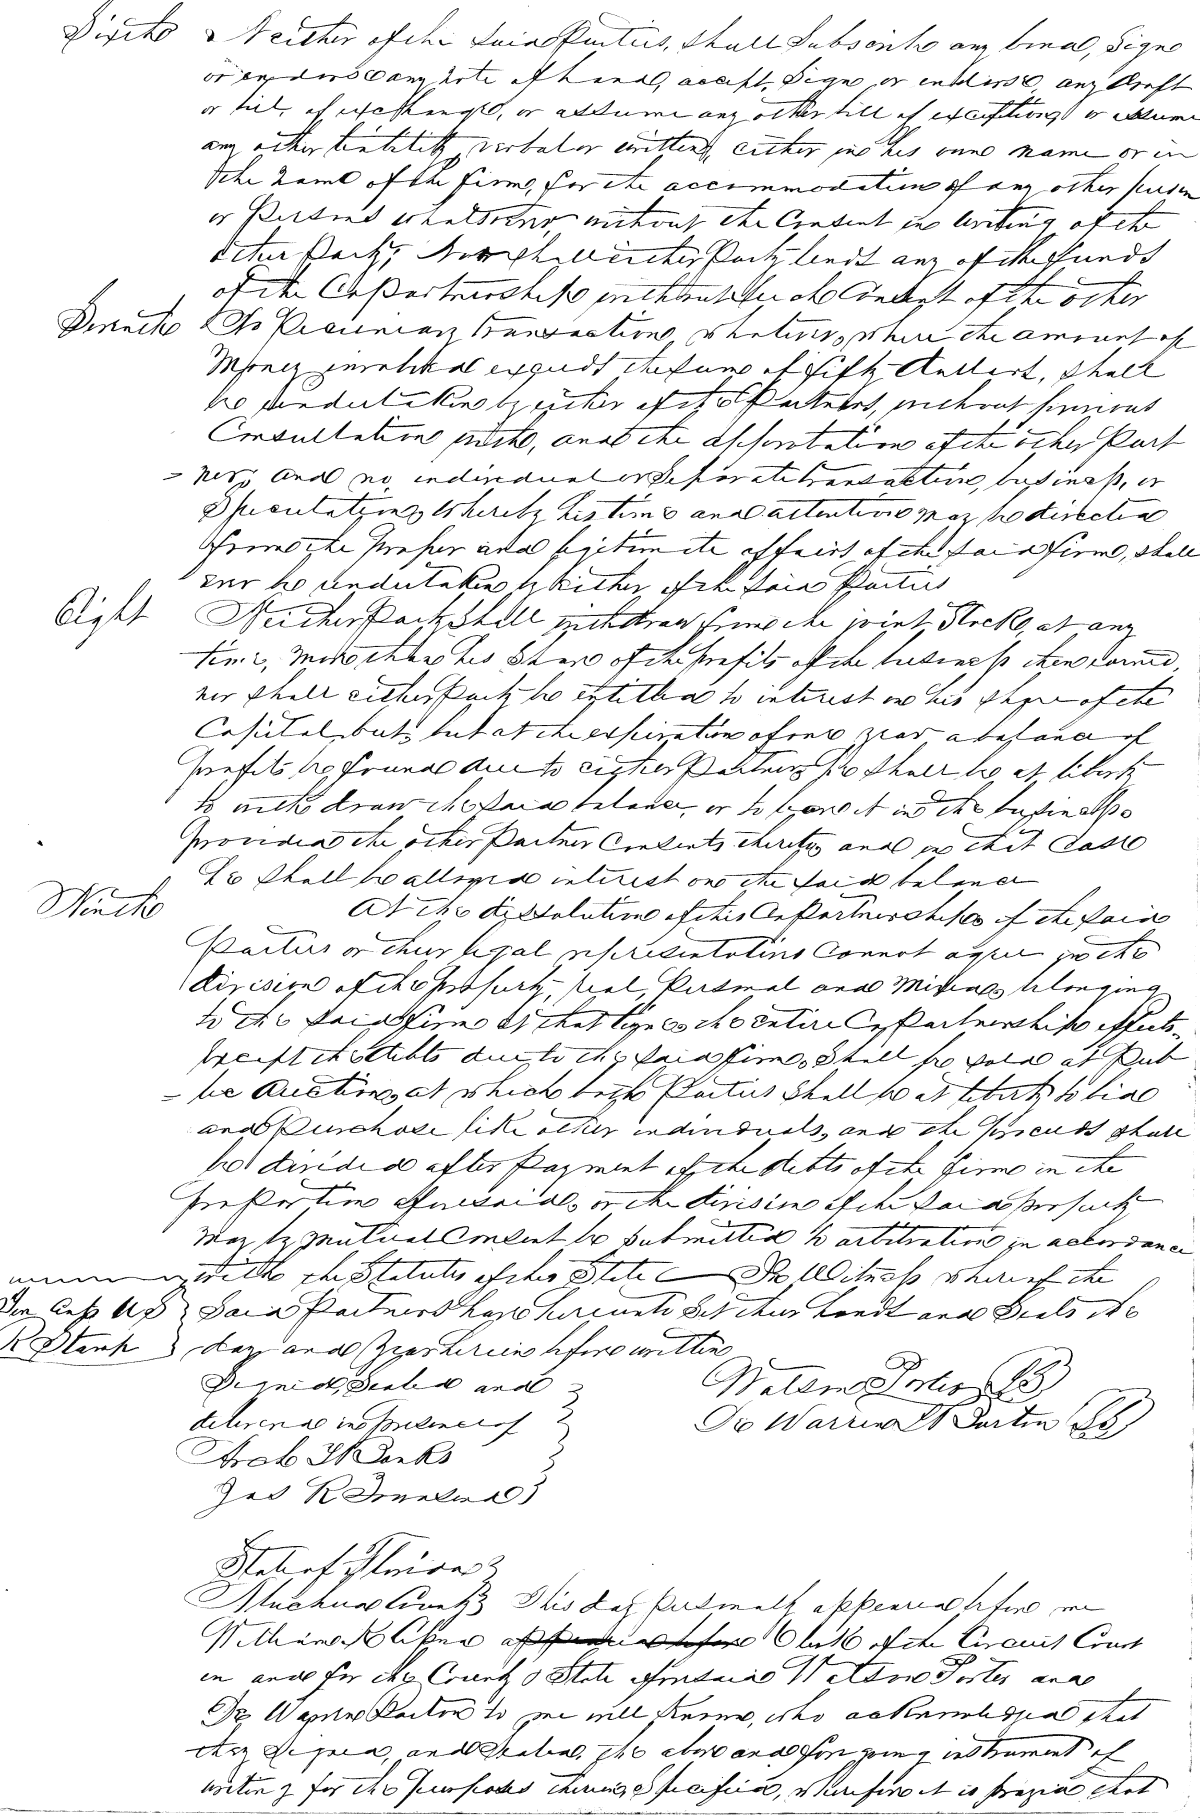 Sixth Neither of the said Parties, shall Subscribe any bond, Sign
or endorse any note of hand, accept, Sign or endorse, any draft
or bill of exchange, or assume any other bill of exceptions or assume
any other liability verbal or written, either in his own name or in
the name of the firm, for the accommodation of any other person
or Persons whatsoever, without the Consent in writing of the
other Party; Nor shall either Party lend any of the funds
of the CoPartnership without such Consent of the other
Seventh No Pecuniary transaction whatever, where the amount of
Money involved exceeds the sum of fifty dollars, shall
be undertaken by either of the Partners, without previous
Consultation with, and the of the other Part
= ner, and no individual or Separate transaction, business, or
Speculation, whereby his time and attention may be directed
from the proper and legitimate affairs of the said firm, shall
ever be undertaken by either of the said Parties
Eight Neither Party shall withdraw from the joint Stock, at any
time, more than his Share of the profits of the business then earned,
nor shall either Party be entitled to interest on his share of the
Capital, but, but at the expiration of one year a balance of
profits be found due to either Partner, he shall be at liberty
to withdraw the said balance, or to leave it in the business
provided the other Partner Consents thereto, and in that Case
he shall be allowed interest on the said balance
Ninth At the dissolution of this CoPartnership if the said
Parties or their legal representatives Cannot agree in the
division of the property, real, Personal and Mixed, belonging
to the said firm at that time, the entire CoPartnership effects,
except the debts due to the said firm, shall be sold at Pub
= lic Auction, at which both Parties shall be at liberty to bid
and Purchase like other individuals, and the proceeds shall
be divided after Payment of the debts of the firm in the
proportion aforesaid, or the division of the said property
may by mutual Consent be submitted to arbitration in accordance
with the Statutes of this State In Witness whereof the
Ten Cents U S said Partners have hereunto Set their hands and Seals the
R Stamp day and year herein before written
Signed, Sealed and Watson Porter LS
delivered in presence of Dr Warren Porter LS
Arch Banks
Jas R
State of Florida
Alachua County This day personally appeared before me
William appeared before Clerk of the Circuit Court
in and for the County & State aforesaid Watson Porter and
Dr Warren Porter to me well known, who acknowledged that
they signed, and sealed, the above and foregoing instrument of
writing for the purposes therein specified, wherefore it is prayed that